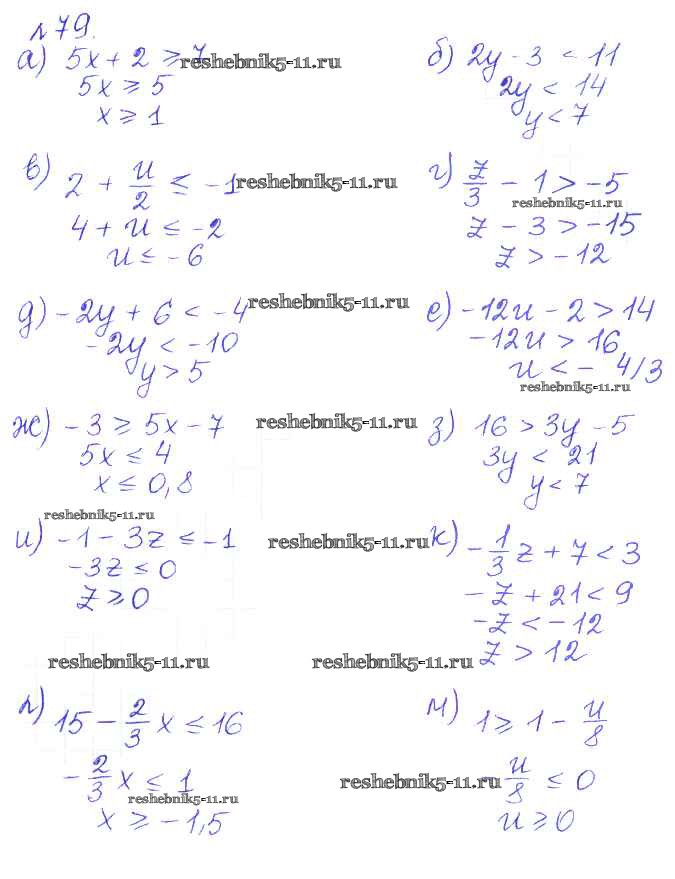 №79.
а) 5x + 2 ≥ 7 reshebnik5-11.ru
5x ≥ 5
x ≥ 1
б) 2y - 3 < 11
2y < 14
y < 7
в) 2 + u/2 ≤ -1 reshebnik5-11.ru
4 + u ≤ -2
u ≤ -6
г) z/3 - 1 > -5
reshebnik5-11.ru
z - 3 > -15
z > -12
д) -2y + 6 < -4 reshebnik5-11.ru
-2y < -10
y > 5
е) -12u - 2 > 14
-12u > 16
u < - 4/3
reshebnik5-11.ru
ж) -3 ≥ 5x - 7 reshebnik5-11.ru
5x ≤ 4
x ≤ 0,8
з) 16 > 3y - 5
3y < 21
y < 7
reshebnik5-11.ru
и) -1 - 3z ≤ -1 reshebnik5-11.ru
-3z ≤ 0
z ≥ 0
к) -1/3 z + 7 < 3
-z + 21 < 9
-z < -12
z > 12
reshebnik5-11.ru reshebnik5-11.ru
л) 15 - 2/3 x ≤ 16
-2/3 x ≤ 1
reshebnik5-11.ru
x ≥ -1,5
м) 1 ≥ 1 - u/8
reshebnik5-11.ru u/8 ≤ 0
u ≥ 0